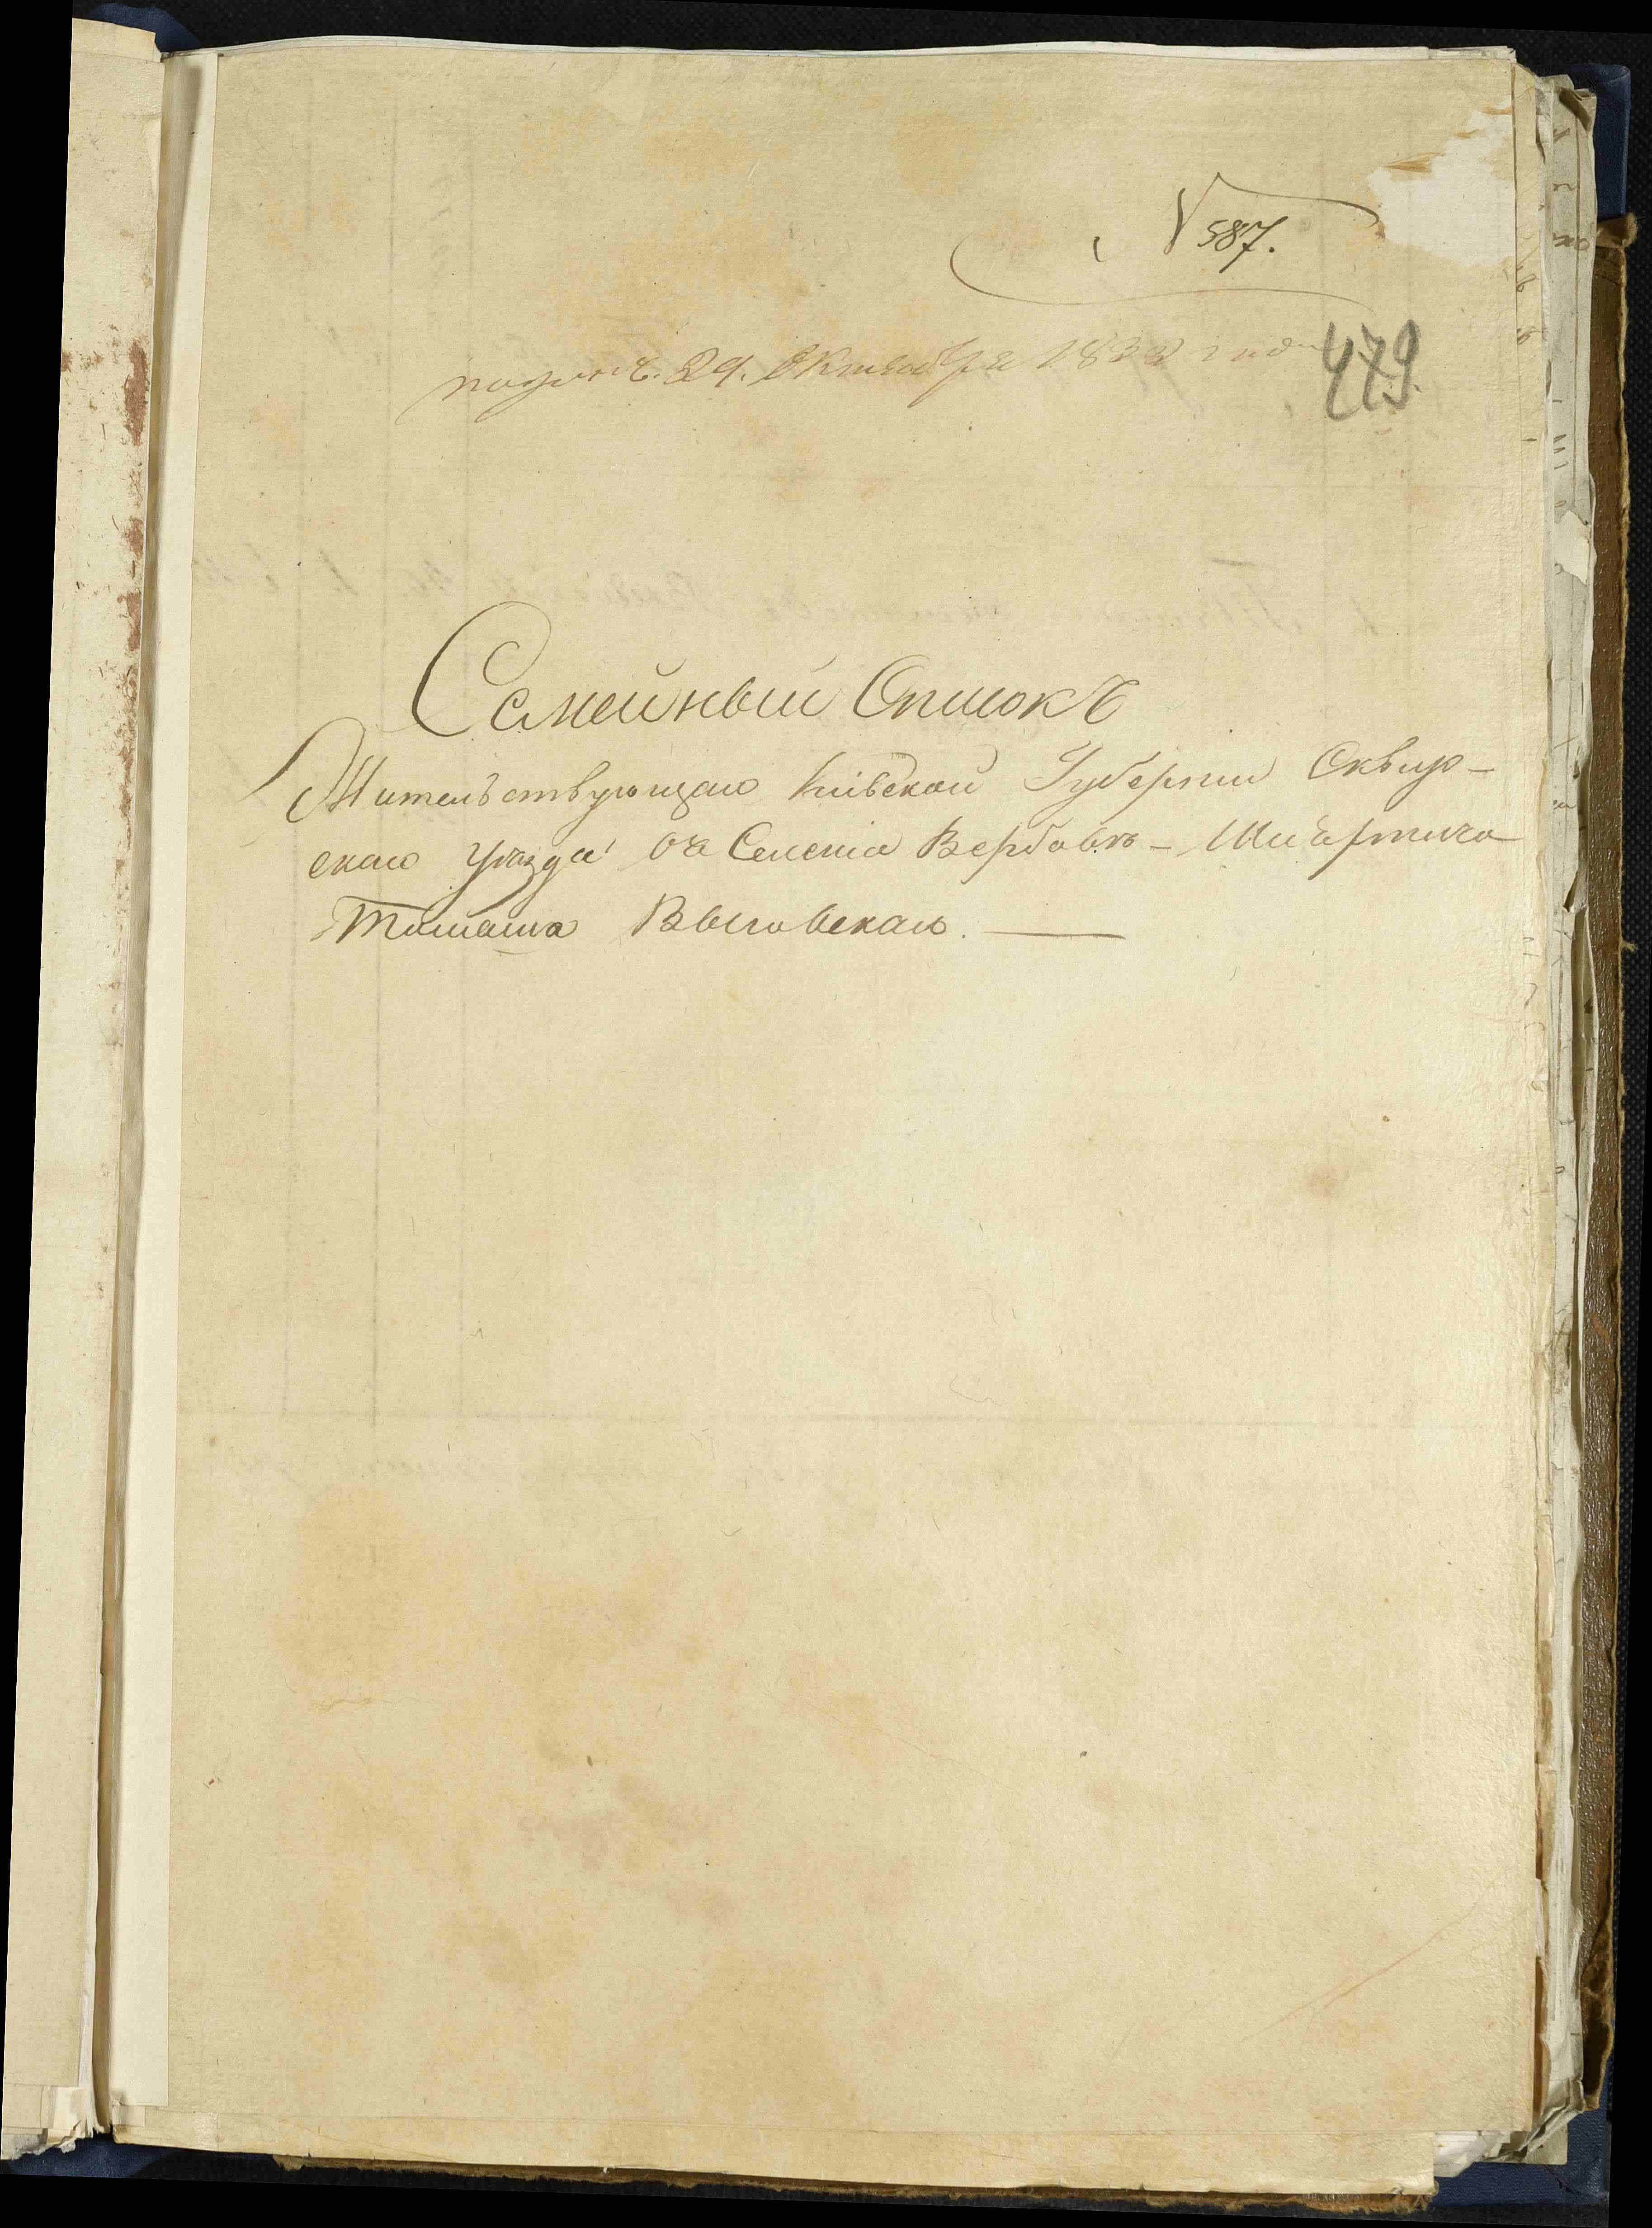 № 587.
получ. 29. Октября 1833 года
479.
Семейный Списокъ
Жительствующаго Кіевской Губерніи Сквир-
скаго уѣзда въ Селеніи Вербовкѣ - Шляхтича
Томаша Выговскаго.